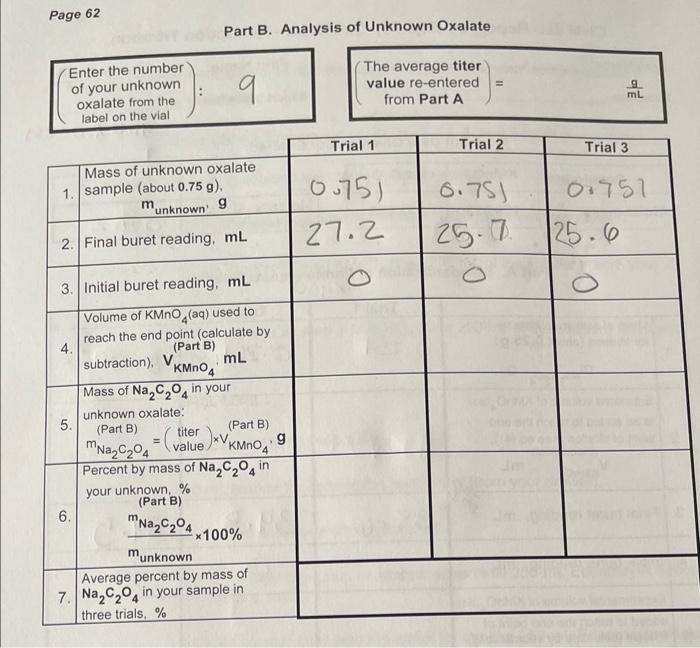 Page 62
Part B. Analysis of Unknown Oxalate
Enter the number
of your unknown
oxalate from the
label on the vial
: 9
The average titer
value re-entered
from Part A
= g/mL
Trial 1 Trial 2 Trial 3
1. Mass of unknown oxalate
sample (about 0.75 g),
m unknown, g
0.751 0.751 0.751
2. Final buret reading, mL 27.2 25.7 25.6
3. Initial buret reading, mL 0 0 0
4. Volume of KMnO4(aq) used to
reach the end point (calculate by
subtraction), V KMnO4 (Part B), mL
5. Mass of Na2C2O4 in your
unknown oxalate:
m Na2C2O4 (Part B) = (titer value) × V KMnO4 (Part B), g
6. Percent by mass of Na2C2O4 in
your unknown, %
(Part B)
m Na2C2O4
×100%
m unknown
7. Average percent by mass of
Na2C2O4 in your sample in
three trials, %